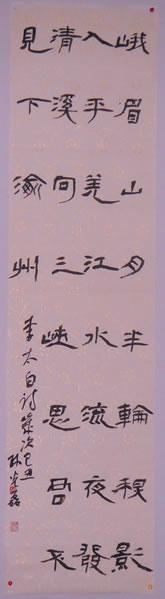 峨眉山月半輪秋影
入平羌江水流夜發
清溪向三峽思君不
見下渝州
李太白詩歲次己丑